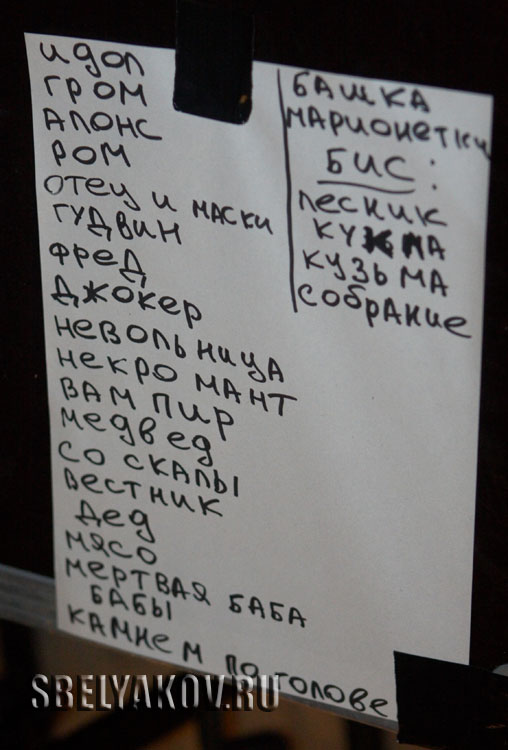 идол
гром
апонс
ром
отец и маски
гудвин
фред
джокер
невольница
некромант
вампир
медвед
со скалы
вестник
дед
мясо
мертвая баба
бабы
камнем по голове
башка
марионетки
бис:
лесник
кузьма
кузьма
собрание
SBELYAKOV.RU